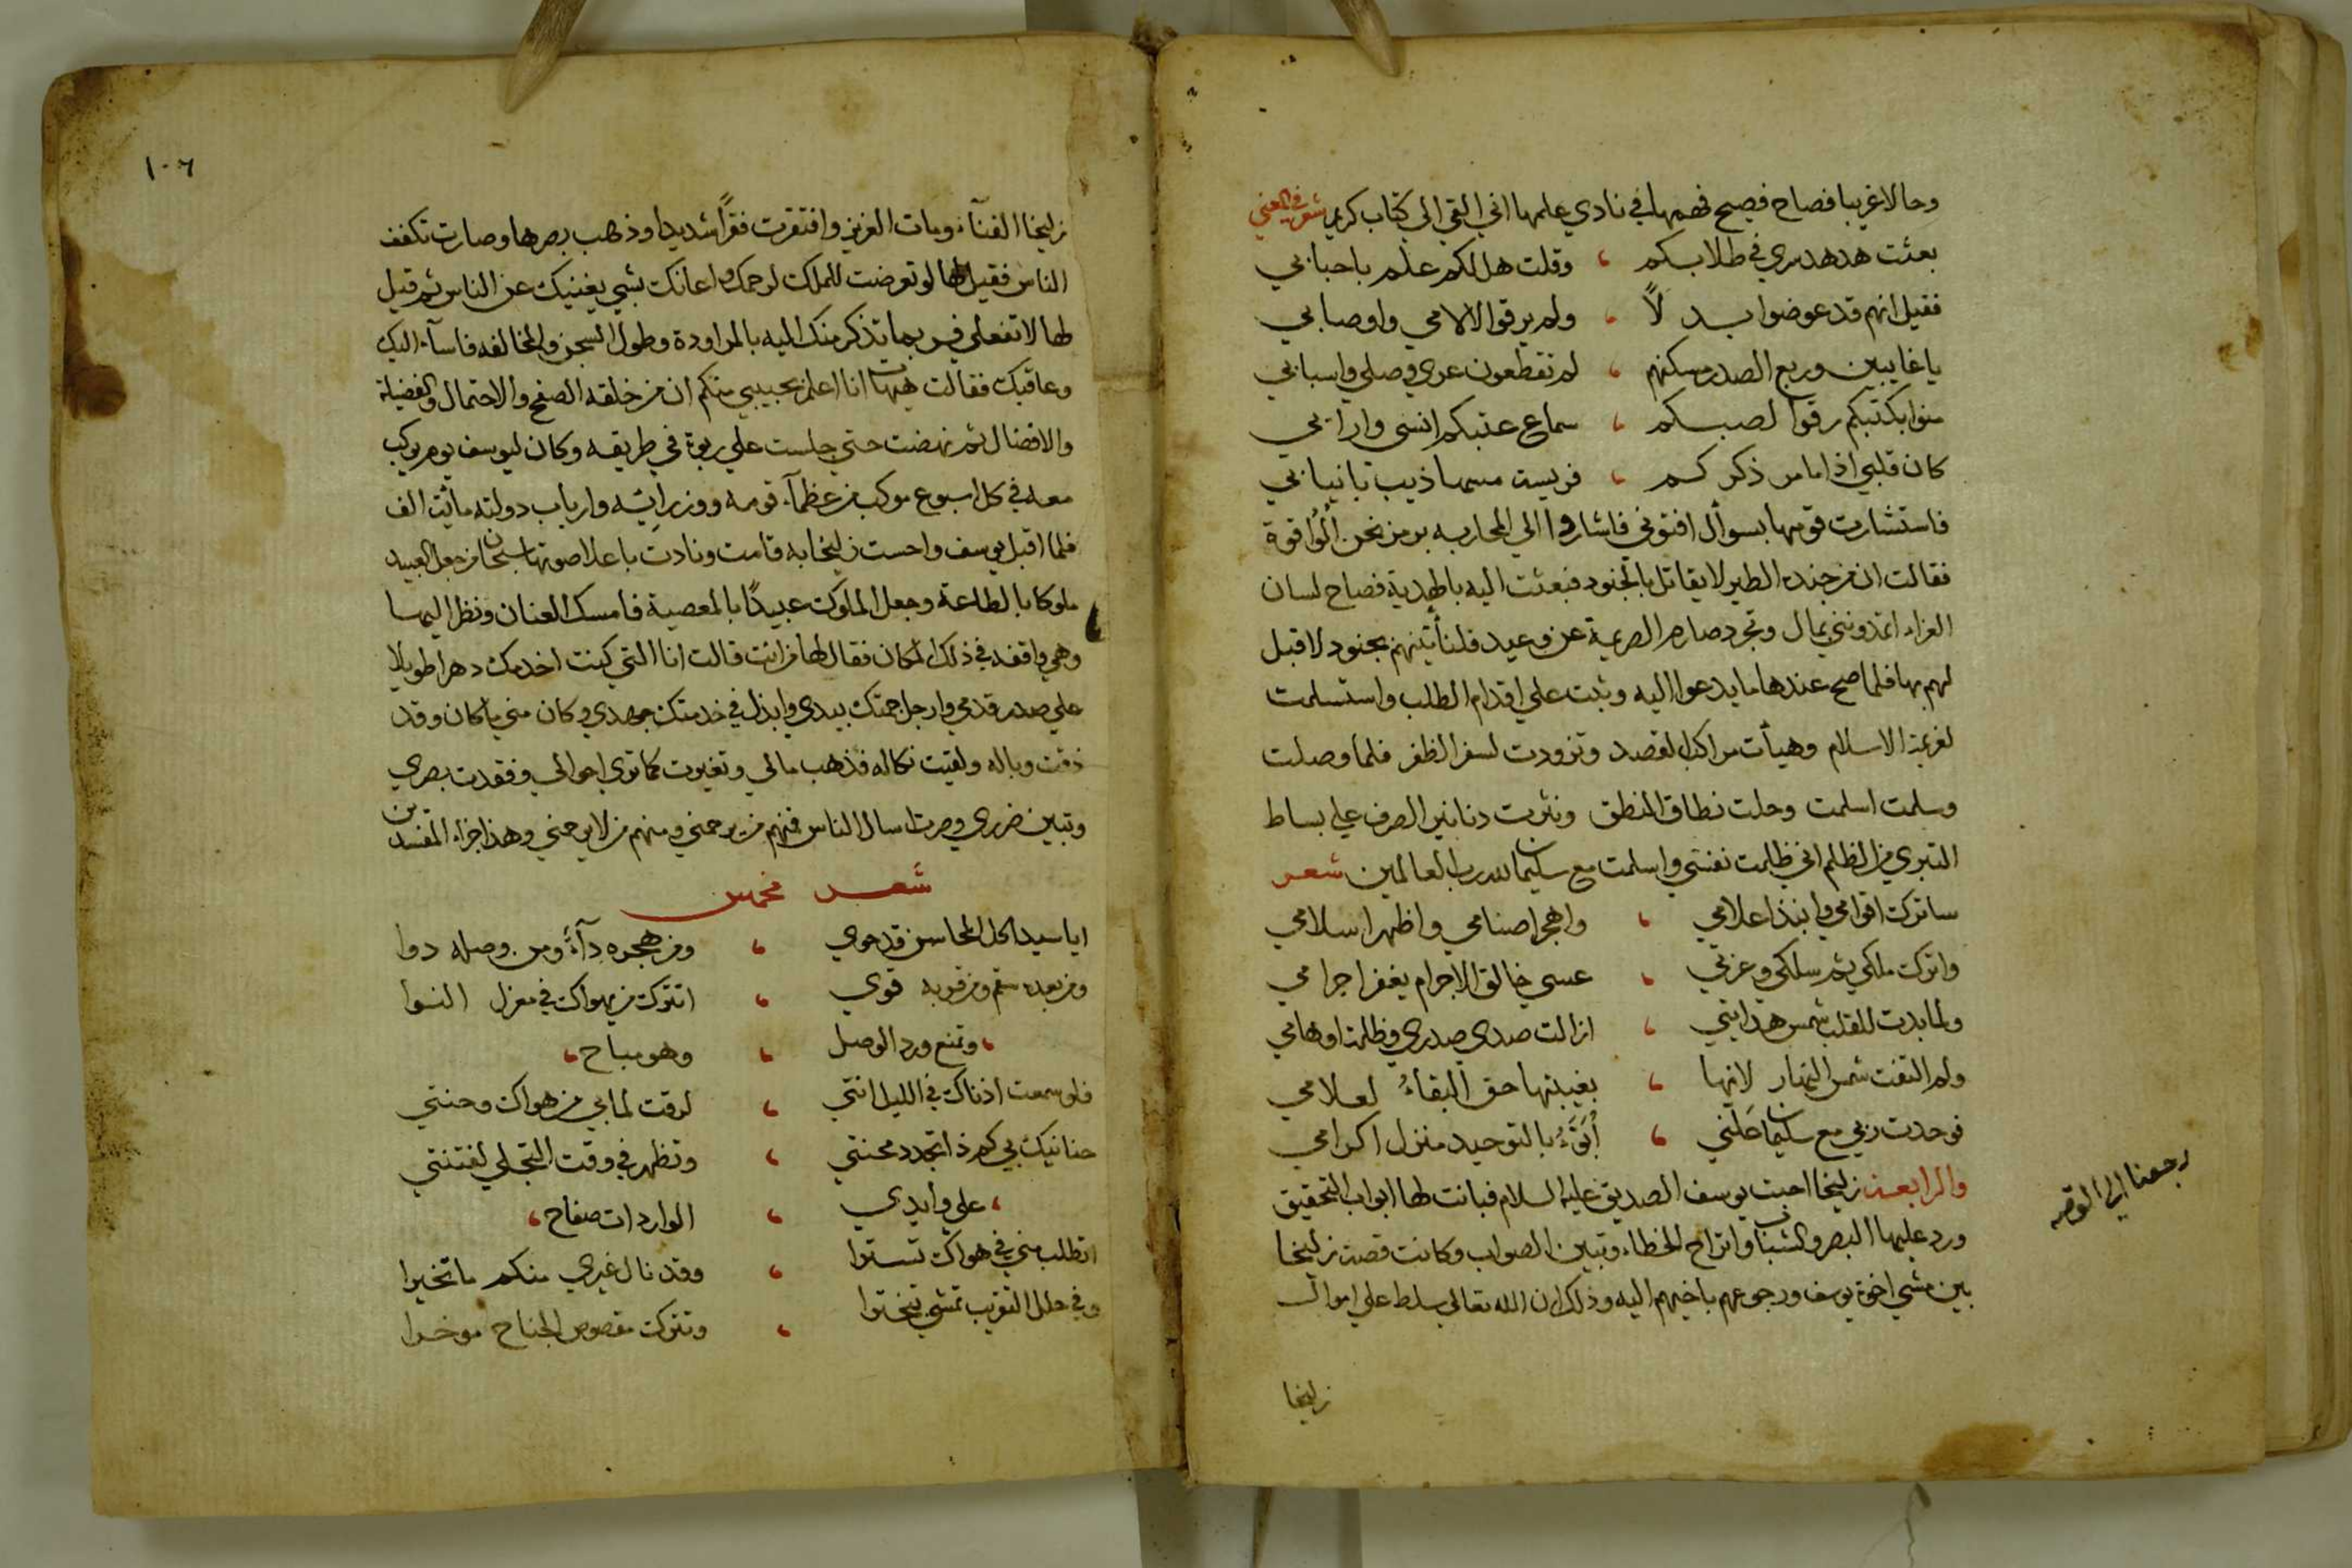 وحالا غريبا فصاح فصيح فهمها في نادي علمها اني القي الي كتاب كريم شعر في المعني
بعثت هدهد سري في طلابكم ، وقلت هل لكم علم باحبابي
فقيل انهم قد عوضوا بدلاً ، ولم يرقوا لالامي واوصابي
يا غايبين وربع الصدر مسكنهم ، لم تقطعون عري وصلي واسبابي
منوا بكتبكم رقوا لصبكم ، سماع عتبكم انسي وارابي
كان قلبي اذا ما مر ذكركم ، فريسة مسها ذيب بانيابي
فاستشارت قومها بسوأل افتوني فاشاروا الي المحاربه برمز نحن الوا قوة
فقالت ان من جنده الطير لا يقاتل بالجنود فبعثت اليه بالهدية فصاح لسان
العزاء اتمدونني بمال وتجرد صارم الصريمة عن وعيد فلنأتينهم بجنود لا قبل
لهم بها فلما صح عندها ما يدعوا اليه وثبت علي اقدام الطلب واستسلمت
لغربة الاسلام وهيأت مراكب القصد وتزودت لسفر الظفر فلما وصلت
وسلمت اسلمت وحلت نطاق المنطق ونثرت دنانير الصرف علي بساط
التبري من الظلم اني ظلمت نفسي واسلمت مع سليمان لله رب العالمين شعر
ساترك اقوامي وانبذ اعلامي ، واهجر اصنامي واظهر اسلامي
واترك ملكي ثم سلكي وعزتي ، عسي خالق الاجرام يغفر اجرامي
ولما بدت للقلب شمس هدايتي ، ازالت صدي صدري وظلمة اوهامي
ولم التفت شمس النهار لانها ، بغيبتها حق البقاءُ لعلامي
فوحدت ربي مع سليمان علني ، أُبَوَّءُ بالتوحيد منزل اكرامي
والرابعة زليخا احبت يوسف الصديق عليه السلام فبانت لها ابواب التحقيق
ورد عليها البصر والشباب وانزاح الخطاء وتبين الصواب وكانت قصة زليخا
بين مشي اخوة يوسف ورجوعهم باخيهم اليه وذلك ان الله تعالي سلط علي اموال
رجعنا الي القصه
زليخا
١٠٦
زليخا الفنآء ومات العزيز وافتقرت فقراً شديدا وذهب بصرها وصارت تكفف
الناس فقيل لها لو تعرضت للملك لرحمك واعانك بشي يغنيك عن الناس ثم قيل
لها لا تفعلي فربما تذكر منك اليه بالمراودة وطول السجن والمخالفه فاسآء اليك
وعاقبك فقالت هيهات انا اعلم بحبيبي منكم ان من خلقه الصفح والاحتمال والفضيلة
والافضال ثم نهضت حتي جلست علي ربوة في طريقه وكان ليوسف يوم يركب
معه في كل اسبوع موكب من عظمآء قومه ووزرايه وارباب دولته مأيت الف
فلما اقبل يوسف واحست زليخا به قامت ونادت باعلا صوتها سبحان من جعل العبيد
ملوكا بالطاعة وجعل الملوك عبيدًا بالمعصية فامسك العنان ونظر اليها
وهي واقفه في ذلك المكان فقال لها من انت قالت انا التي كنت اخدمك دهرا طويلا
علي صدر قدمي وارجل جمتك بيدي وابذل في خدمتك جهدي وكان مني ما كان وقد
ذقت وباله ولقيت نكاله فذهب مالي وتغيرت كما تري احوالي وفقدت بصري
وتبين ضرري وصرت اسال الناس فمنهم من يرحمني ومنهم من لا يرحمني وهذا جزاء المفسدين
شعر مخمس
ايا سيدا كل المحاسن قد حوي ، ومن هجره دآءً ومن وصله دوا
ومن بعده سقم ومن قربه قوي ، اتترك من يهواك في معزل النوا
، وتمنع ورد الوصل ، وهو مباح ،
فلو سمعت اذناك في الليل انتي ، لرقت لما بي من هواك وحنتي
حنانيك بي كم ذا تجدد محنتي ، وتظهر في وقت التجلي لفتنتي
، علي وأيدي ، الواردات صفاح ،
اتطلب مني في هواك تسترا ، وقد نال غيري منكم ما تخيرا
وفي حلل التقريب تمشي تبخترا ، وتترك مقصوص الجناح موخرا